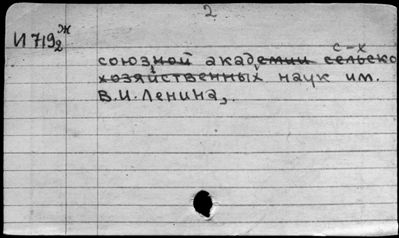 2
И 719 Ж
2
с-х
союзной академии сельско
хозяйственных наук им.
В.И. Ленина,.